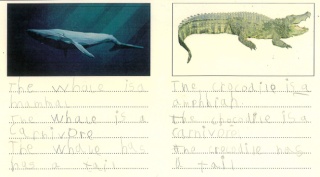 The whale is a
mammal.
The whale is a
carnivore
The whale has
has a tail
The crocodile is a
amphbian.
the crocodile is a
carnivore.
the crocodile has
a tail